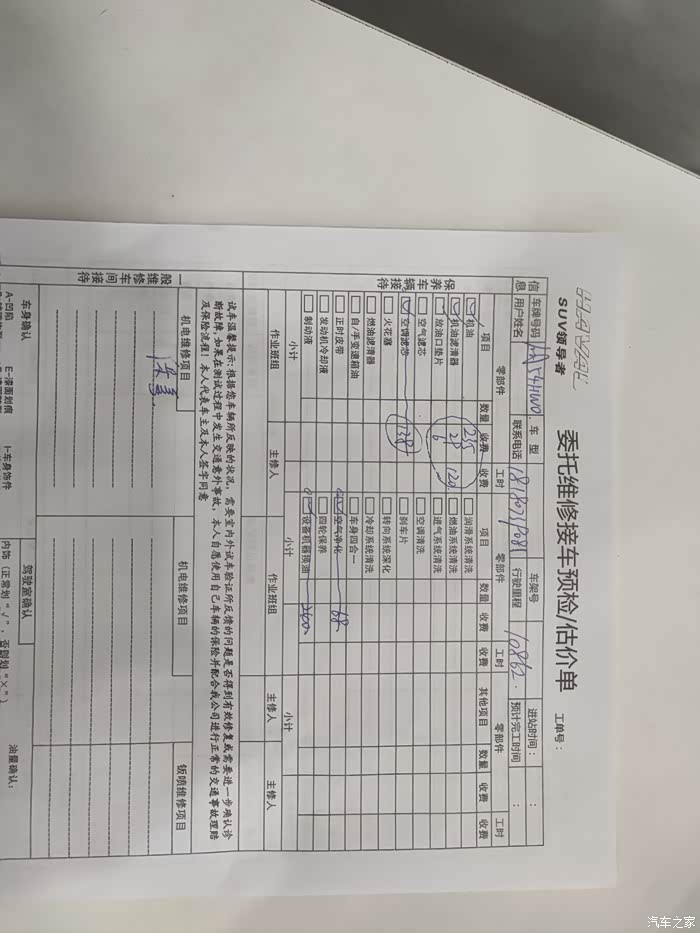 HAVAL
SUV领导者
委托维修接车预检/估价单
工单号:
信息
车牌号码
车 型
车架号
进站时间: :
用户姓名
联系电话
行驶里程 10862.
预计完工时间 :
保养车辆接待
项目 零部件 数量 收费 工时 收费
项目 零部件 数量 收费 工时 收费
其他项目 零部件 数量 收费 工时 收费
机油 235
润滑系统清洗
机油滤清器 28 120
燃油系统清洗
放油口垫片 6
进气系统清洗
空气滤芯
空调清洗
空调滤芯 138
刹车片
火花塞
转向系统深化
燃油滤清器
冷却系统清洗
自/手变速箱油
车身四合一
正时皮带
空气净化 68
发动机冷却液
四轮保养
制动液
设备机器换油 260
小计
小计
小计
作业班组
主修人
作业班组
主修人
主修人
试车温馨提示:根据您车辆所反映的状况,需要室内外试车验证所反馈的问题是否得到有效修复或需要进一步确认诊
断故障,如果在测试过程中发生交通意外事故,本人自愿使用自己车辆的保险并配合我公司进行正常的交通事故理赔
及保险流程!本人代表车主及本人签字同意
一般维修车间接待
机电维修项目
机电维修项目
钣喷维修项目
车身确认
驾驶室确认
油量确认:
A-凹陷
E-漆面划痕
I-车身饰件
内饰(正常划“√”,否则划“×”)
汽车之家